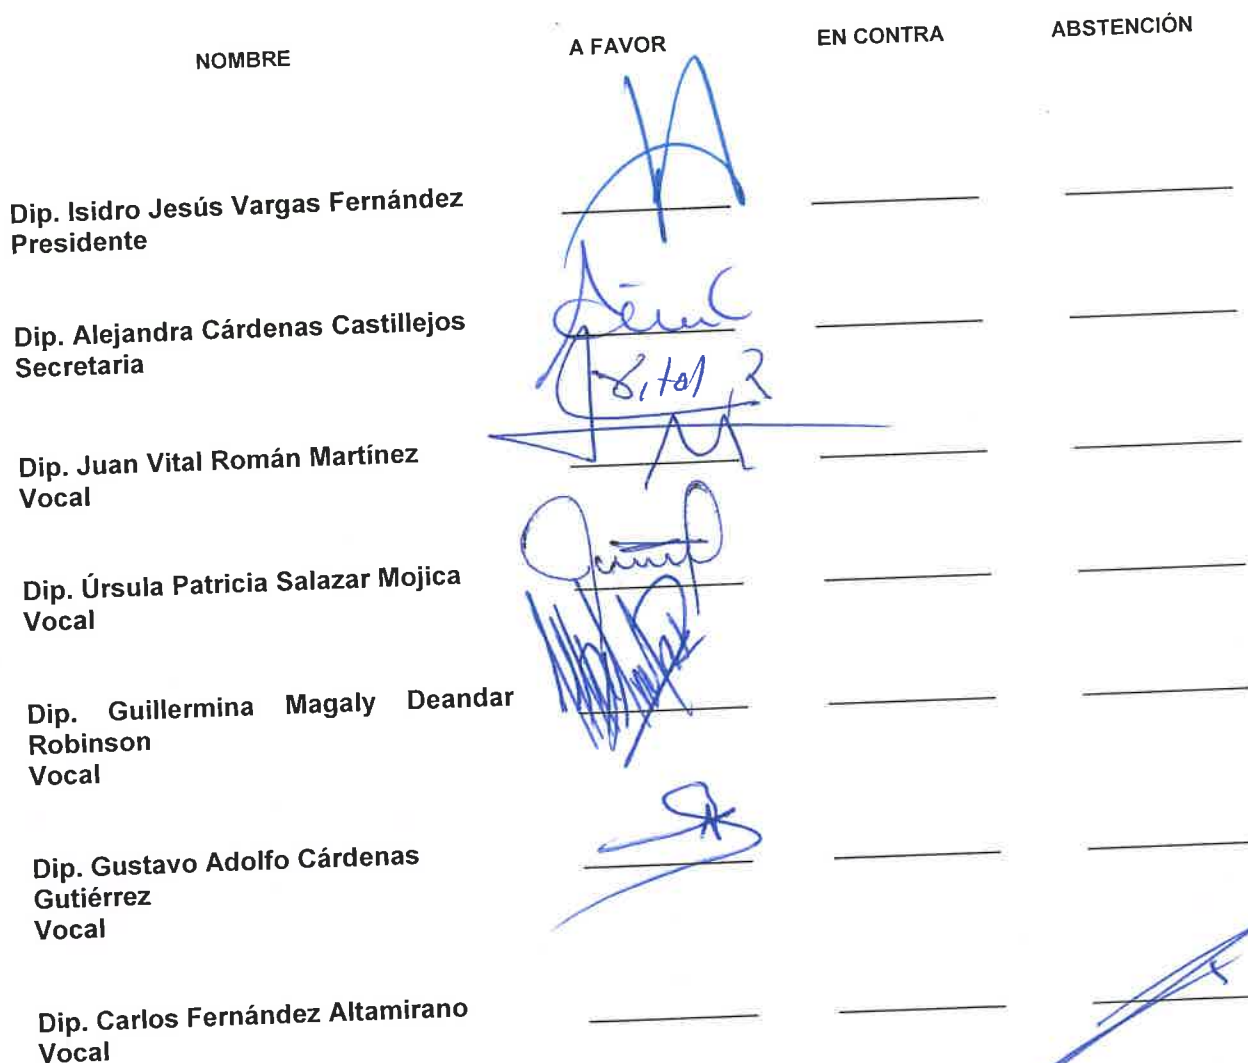 NOMBRE A FAVOR EN CONTRA ABSTENCIÓN
Dip. Isidro Jesús Vargas Fernández
Presidente
Dip. Alejandra Cárdenas Castillejos
Secretaria
Vital R
Dip. Juan Vital Román Martínez
Vocal
Dip. Úrsula Patricia Salazar Mojica
Vocal
Dip. Guillermina Magaly Deandar
Robinson
Vocal
Dip. Gustavo Adolfo Cárdenas
Gutiérrez
Vocal
Dip. Carlos Fernández Altamirano
Vocal